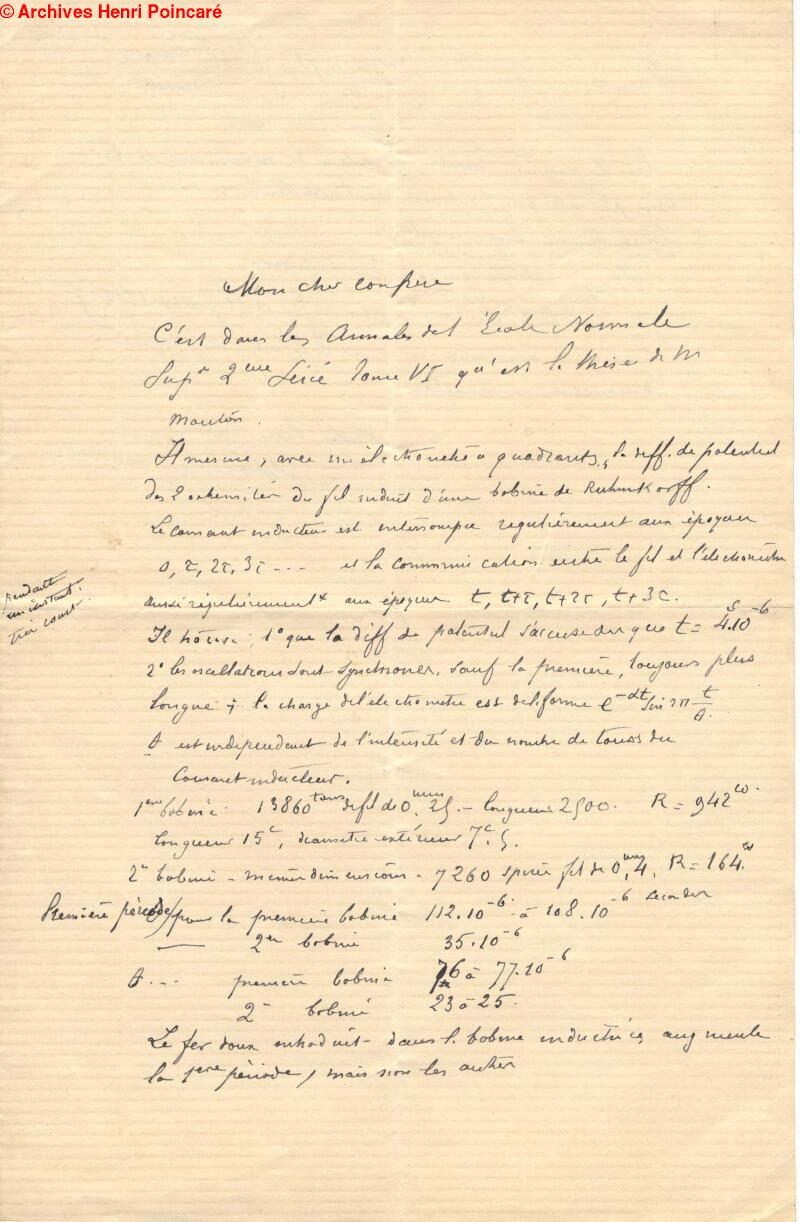 © Archives Henri Poincaré
Mon cher confrère
C'est dans les Annales de l'École Normale
Supre 2ème Série Tome VI qu'est la thèse de M
Mouton.
Il mesure, avec un électromètre à quadrants, la diff. de potentiel
des 2 extrémités du fil induit d'une bobine de Ruhmkorff.
Le courant inducteur est interrompu régulièrement aux époques
0, τ, 2τ, 3τ --- et la communication entre le fil et l'électromètre
aussi régulièrement × aux époques t, t+τ, t+2τ, t+3τ.
pendant
un instant
très court.
Il trouve : 1° que la diff de potentiel s'accuse dès que t = 4.10⁻⁶
2° les oscillations sont synchrones, sauf la première, toujours plus
longue ; la charge de l'électromètre est de la forme e^-αt sin 2π t/θ.
θ est indépendant de l'intensité et du nombre de tours du
courant inducteur.
1ère bobine. 13860 tours de fil de 0,mm 25 - longueur 2500. R = 942ω.
longueur 15c, diamètre extérieur 7c.5
2e bobine - même dimensions - 7260 spires fil de 0,mm 4, R = 164ω
Première période pour la première bobine 112.10⁻⁶ à 108.10⁻⁶ secondes
— 2e bobine 35.10⁻⁶
θ --- première bobine 76 à 77.10⁻⁶
2e bobine 23 à 25.
Le fer doux introduit dans la bobine inductrice, augmente
la 1ère période, mais non les autres